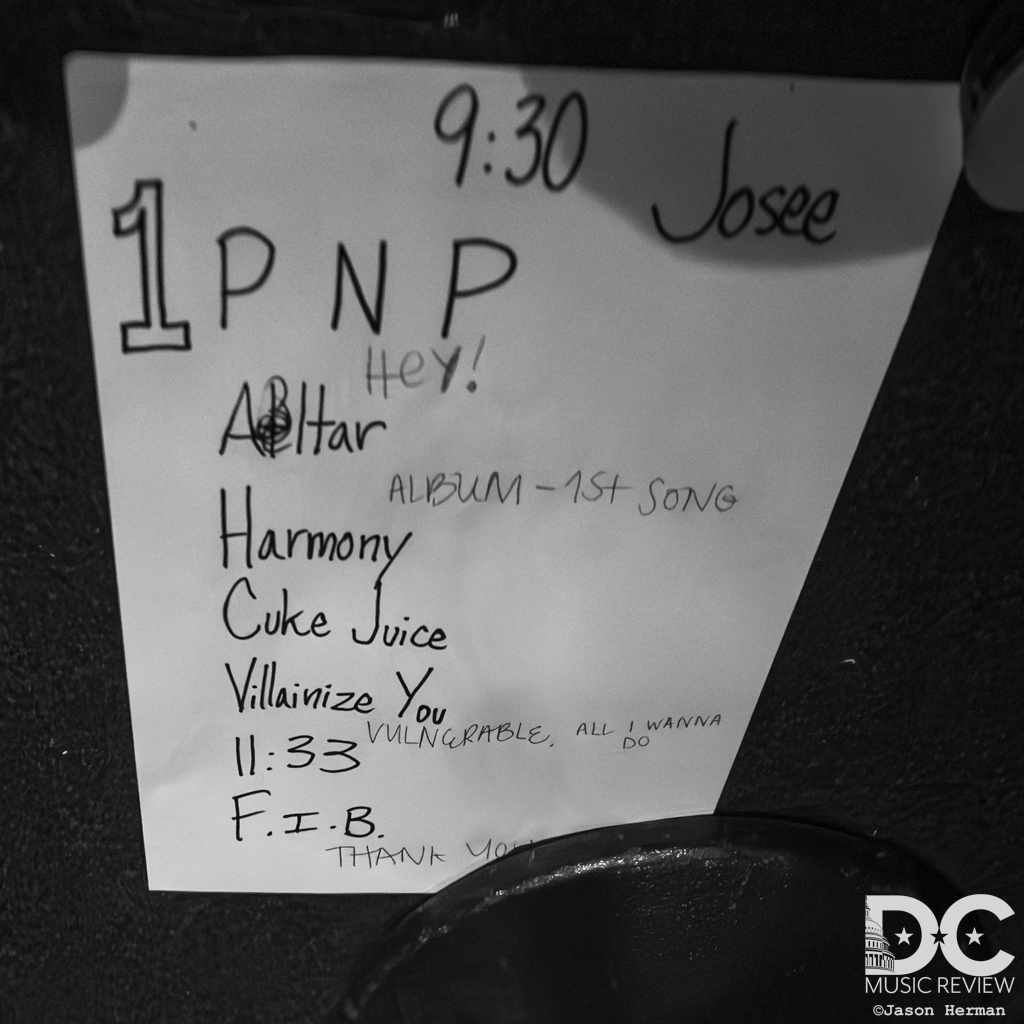 9:30
Josee
1 P N P
HEY!
Altar
ALBUM - 1St SONG
Harmony
Cuke Juice
Villainize You
VULNERABLE, ALL I WANNA
DO
11:33
F.I.B.
THANK YOU
DC
MUSIC REVIEW
©Jason Herman